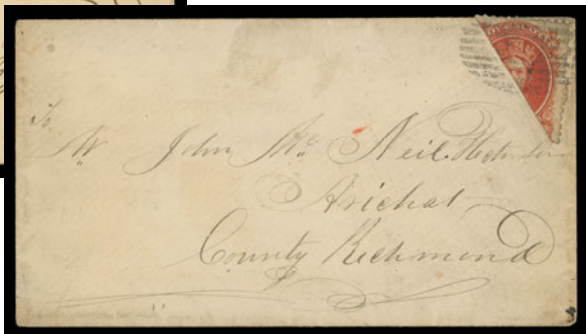 To
Mr John Mc Neil
Arichat
County Richmond